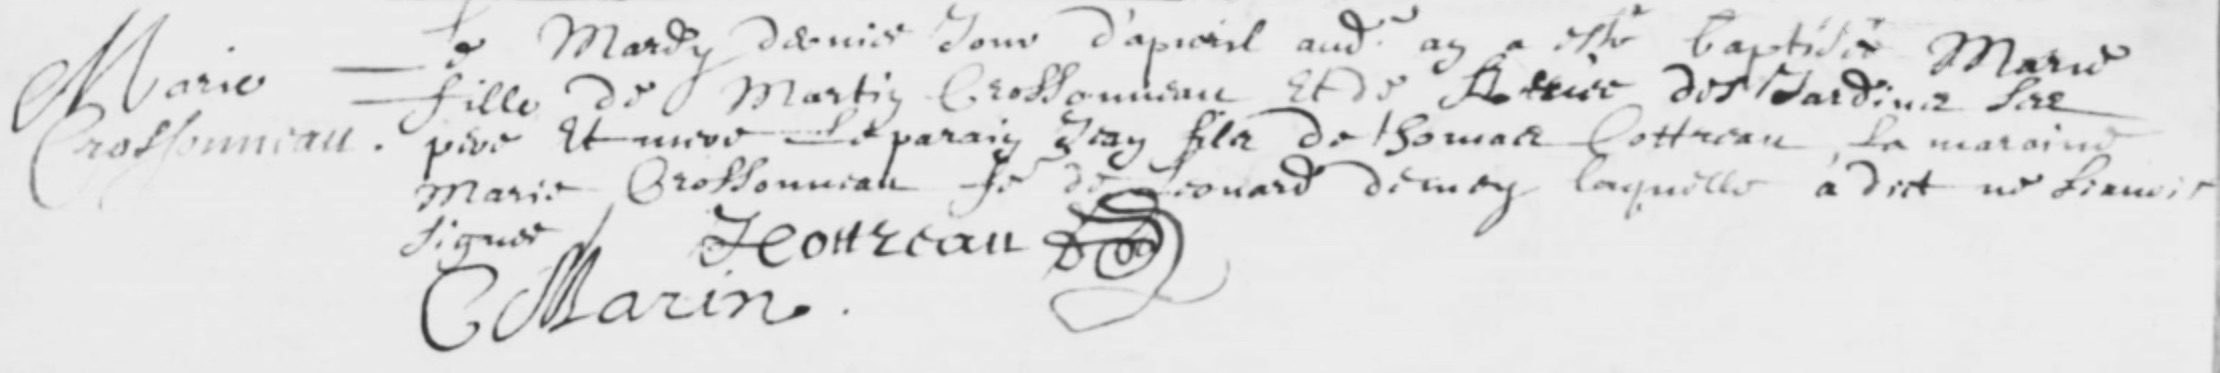 Marie
Crossonneau.
Le Mardy dernier Jour d'apvril aud. an a esté baptisée Marie
fille de Martin Crossonneau Et de des Jardins ses
pere Et mere Le parain Jean fils de thomas Cottreau La maraine
Marie Crossonneau fe de Leonard demen laquelle a dict ne scavoir
signer JCottreau
CMarin.